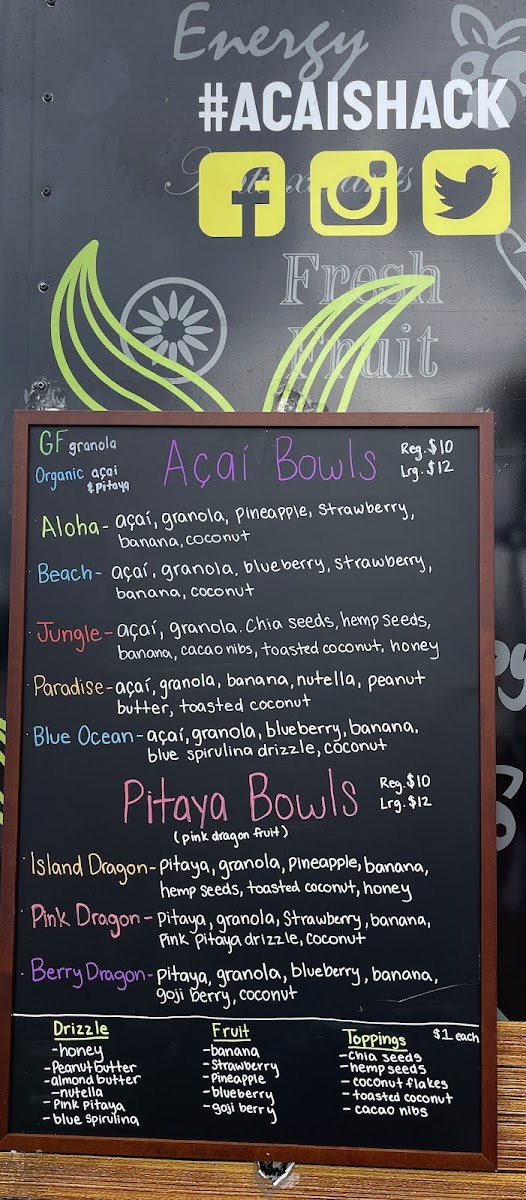 Energy
#ACAISHACK
Antioxidants
Fresh
Fruit
GF granola
Organic açaí
& Pitaya
Açaí Bowls
Reg. $10
Lrg. $12
Aloha - açaí, granola, pineapple, strawberry,
banana, coconut
Beach - açaí, granola, blueberry, strawberry,
banana, coconut
Jungle - açaí, granola. Chia seeds, hemp seeds,
banana, cacao nibs, toasted coconut, honey
Paradise - açaí, granola, banana, nutella, peanut
butter, toasted coconut
Blue Ocean - açaí, granola, blueberry, banana,
blue spirulina drizzle, coconut
Pitaya Bowls
Reg. $10
Lrg. $12
(pink dragon fruit)
Island Dragon - pitaya, granola, pineapple, banana,
hemp seeds, toasted coconut, honey
Pink Dragon - pitaya, granola, strawberry, banana,
pink pitaya drizzle, coconut
Berry Dragon - pitaya, granola, blueberry, banana,
goji berry, coconut
Drizzle
- honey
- Peanut butter
- almond butter
- nutella
- Pink Pitaya
- blue spirulina
Fruit
- banana
- Strawberry
- Pineapple
- blueberry
- goji berry
Toppings $1 each
- chia seeds
- hemp seeds
- coconut flakes
- toasted coconut
- cacao nibs